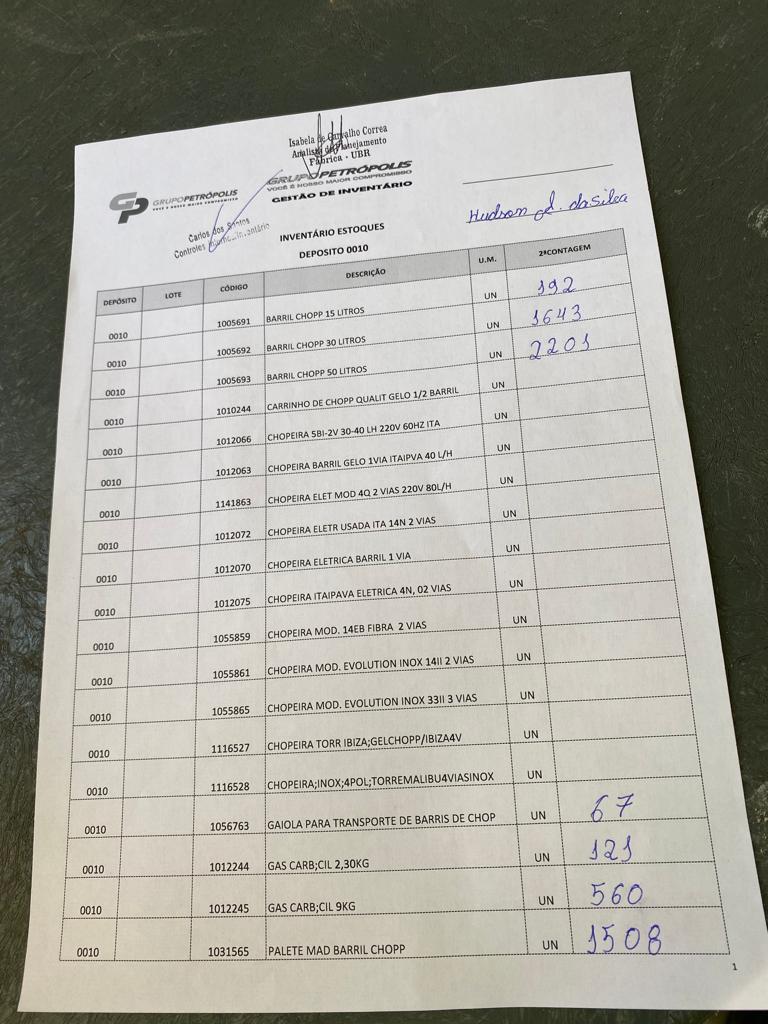 Isabela de Carvalho Correa
Analista de Planejamento
Fábrica - UBR
GRUPOPETRÓPOLIS
VOCÊ É NOSSO MAIOR COMPROMISSO
GESTÃO DE INVENTÁRIO
GP GRUPOPETRÓPOLIS
VOCÊ É NOSSO MAIOR COMPROMISSO
Carlos dos Santos
Controles Inventário
Hudson da silva
INVENTÁRIO ESTOQUES
DEPOSITO 0010
DEPÓSITO LOTE CÓDIGO DESCRIÇÃO U.M. 2ªCONTAGEM
0010 1005691 BARRIL CHOPP 15 LITROS UN 192
0010 1005692 BARRIL CHOPP 30 LITROS UN 1643
0010 1005693 BARRIL CHOPP 50 LITROS UN 2201
0010 1010244 CARRINHO DE CHOPP QUALIT GELO 1/2 BARRIL UN
0010 1012066 CHOPEIRA 5BI-2V 30-40 LH 220V 60HZ ITA UN
0010 1012063 CHOPEIRA BARRIL GELO 1VIA ITAIPVA 40 L/H UN
0010 1141863 CHOPEIRA ELET MOD 4Q 2 VIAS 220V 80L/H UN
0010 1012072 CHOPEIRA ELETR USADA ITA 14N 2 VIAS UN
0010 1012070 CHOPEIRA ELETRICA BARRIL 1 VIA UN
0010 1012075 CHOPEIRA ITAIPAVA ELETRICA 4N, 02 VIAS UN
0010 1055859 CHOPEIRA MOD. 14EB FIBRA 2 VIAS UN
0010 1055861 CHOPEIRA MOD. EVOLUTION INOX 14II 2 VIAS UN
0010 1055865 CHOPEIRA MOD. EVOLUTION INOX 33II 3 VIAS UN
0010 1116527 CHOPEIRA TORR IBIZA;GELCHOPP/IBIZA4V UN
0010 1116528 CHOPEIRA;INOX;4POL;TORREMALIBU4VIASINOX UN
0010 1056763 GAIOLA PARA TRANSPORTE DE BARRIS DE CHOP UN 67
0010 1012244 GAS CARB;CIL 2,30KG UN 121
0010 1012245 GAS CARB;CIL 9KG UN 560
0010 1031565 PALETE MAD BARRIL CHOPP UN 1508
1